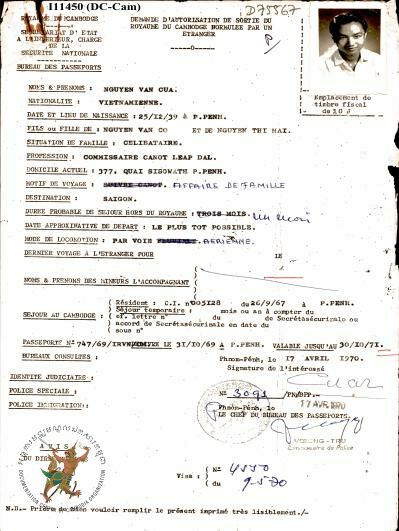 I11450 (DC-Cam)
D75567
ROYAUME DU CAMBODGE
SECRETARIAT D'ETAT
A L'INTERIEUR, CHARGE
DE LA
SECURITE NATIONALE
BUREAU DES PASSEPORTS
DEMANDE D'AUTORISATION DE SORTIE DU
ROYAUME DU CAMBODGE FORMULEE PAR UN
ETRANGER
Emplacement de
timbre fiscal
de 10 J
NOMS & PRENOMS : NGUYEN VAN CUA.
NATIONALITE : VIETNAMIENNE.
DATE ET LIEU DE NAISSANCE : 25/12/39 A P.PENH.
FILS ou FILLE DE : NGUYEN VAN CO ET DE NGUYEN THI MAI.
SITUATION DE FAMILLE : CELIBATAIRE.
PROFESSION : COMMISSAIRE CANOT LEAP DAL.
DOMICILE ACTUEL : 377. QUAI SISOWATH P.PENH.
MOTIF DE VOYAGE : SUIVRE CANOT. AFFAIRE DE FAMILLE
DESTINATION : SAIGON.
DUREE PROBABLE DE SEJOUR HORS DU ROYAUME : TROIS MOIS. Un mois
DATE APPROXIMATIVE DE DEPART : LE PLUS TOT POSSIBLE.
MODE DE LOCOMOTION : PAR VOIE AERIENNE.
DERNIER VOYAGE A L'ETRANGER POUR LE
NOMS & PRENOMS DES MINEURS L'ACCOMPAGNANT
SEJOUR AU CAMBODGE :
Résident : C.I. n°005128 du 26/9/67 à P.PENH.
Séjour temporaire : mois ou an à compter du
cf. lettre n° du de Secrétasécurinale ou
accord de Secrétasécurinale en date du
sous n°
PASSEPORTE N° 747/69/IRVN DELIVRE LE 31/10/69 A P.PENH. VALABLE JUSQU'AU 30/10/71.
BUREAUX CONSULTES : Phnom-Penh, le 17 AVRIL 1970.
Signature de l'intéressé
IDENTITE JUDICIAIRE :
POLICE SPECIALE :
POLICE IMMIGRATION :
N° 3091 /PN/BPP.
17 AVR 1970
Phnom-Penh, le
LE CHEF DU BUREAU DES PASSEPORTS
VOEUNG-TRU
Commissaire de Police
AVIS
DU DIR
Visa :
N° 4550
du 9-5-70
N.B.- Prière de bien vouloir remplir le présent imprimé très lisiblement./-